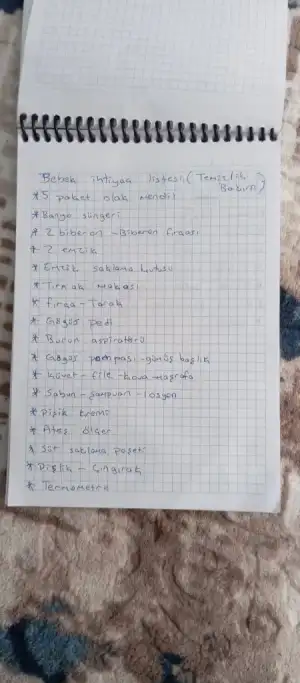 Bebek ihtiyaç listesi (Temizlik
Bakım)
* 5 paket ıslak mendil
* Banyo süngeri
* 2 biberon - Biberon fırçası
* 2 emzik
* Emzik saklama kutusu
* Tırnak makası
* Fırça - Tarak
* Göğüs pedi
* Burun aspiratörü
* Göğüs pompası - gümüş başlık
* küvet - file - kova - maşrafa
* Sabun - şampuan - losyon
* Pişik kremi
* Ateş ölçer
* Süt saklama poşeti
* Dişlik - Çıngırak
* Termometre